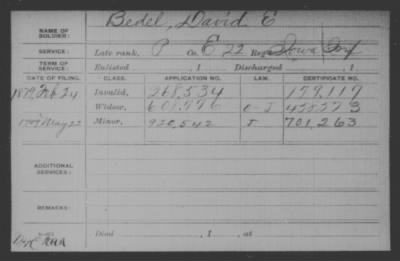 Bedel, David E
NAME OF SOLDIER:
SERVICE: Late rank, P Co. E 22 Reg't Iowa Inf
TERM OF SERVICE: Enlisted , 1 Discharged , 1
DATE OF FILING. CLASS. APPLICATION NO. LAW. CERTIFICATE NO.
1879 Feb 24 Invalid, 268,534 179,119
Widow,
May 22 Minor, 920,542 J 701,263
ADDITIONAL SERVICES:
REMARKS:
Died , 1 , at